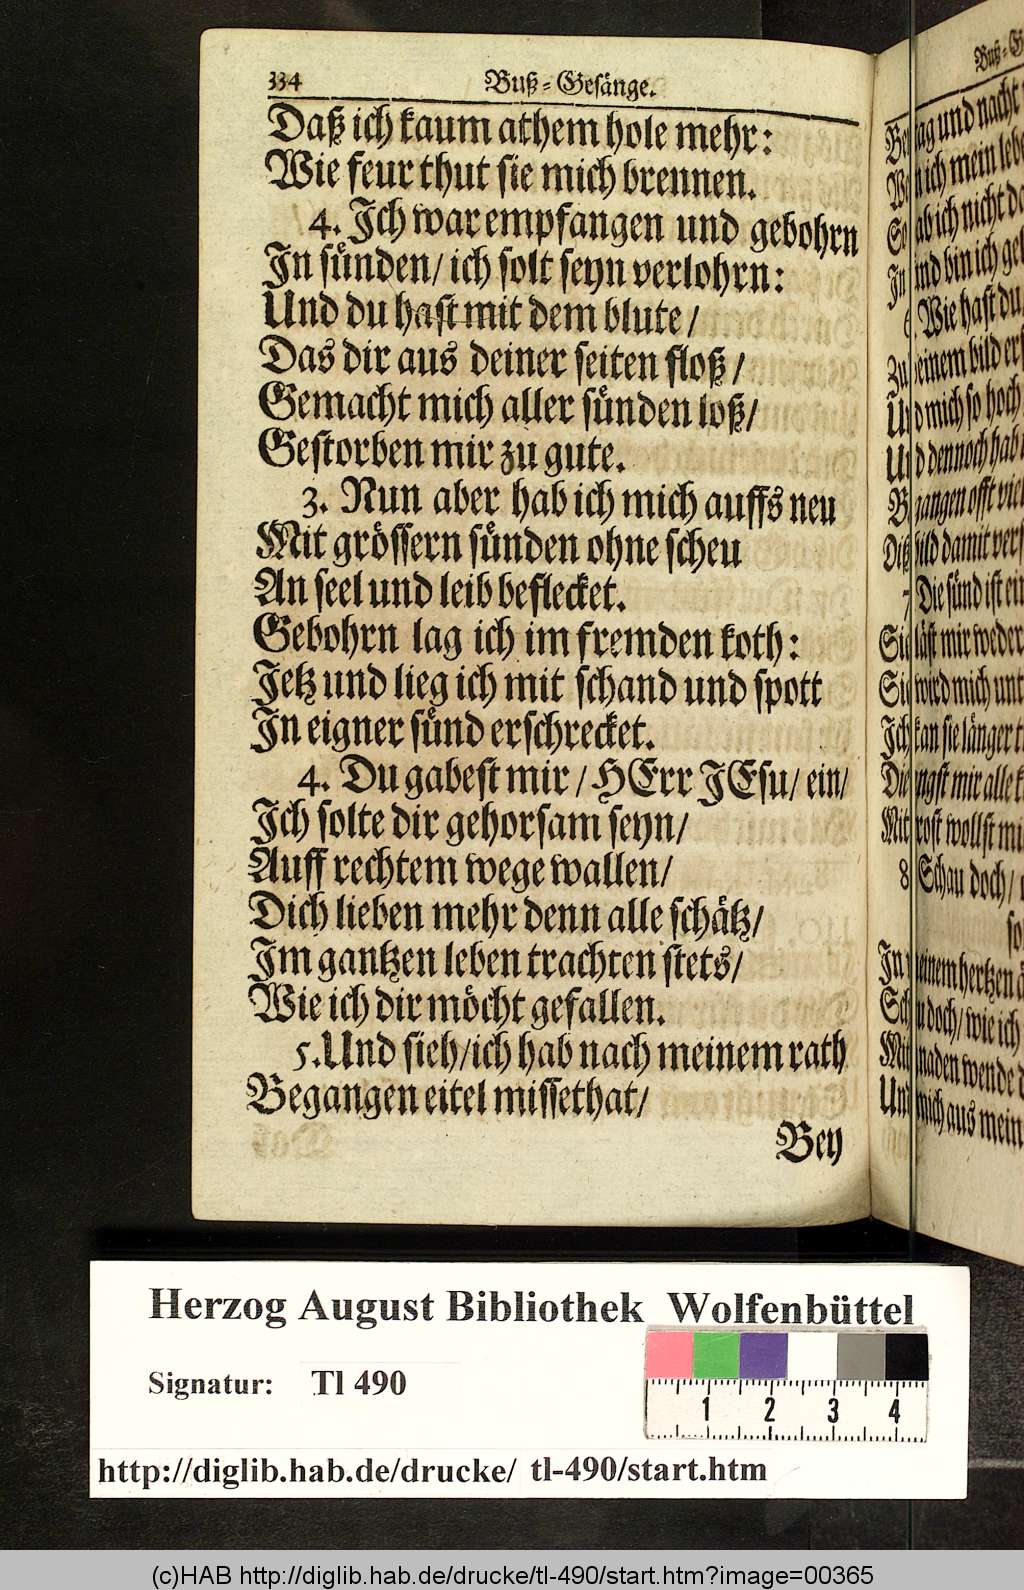 334
Buß-Gesänge.
Daß ich kaum athem hole mehr:
Wie feur thut sie mich brennen.
4. Ich war empfangen und gebohrn
In sünden/ ich solt seyn verlohrn:
Und du hast mit dem blute/
Das dir aus deiner seiten floß/
Gemacht mich aller sünden loß/
Gestorben mir zu gute.
3. Nun aber hab ich mich auffs neu
Mit grössern sünden ohne scheu
An seel und leib beflecket.
Gebohrn lag ich im fremden koth:
Jetz und lieg ich mit schand und spott
In eigner sünd erschrecket.
4. Du gabest mir/ HErr JEsu/ ein/
Ich solte dir gehorsam seyn/
Auff rechtem wege wallen/
Dich lieben mehr denn alle schätz/
Im gantzen leben trachten stets/
Wie ich dir möcht gefallen.
5. Und sieh/ ich hab nach meinem rath
Begangen eitel missethat/
Bey
Buß-
tag und nacht
ich mein
ich nicht
und bin ich
Wie hast du
bild
mich so hoch
dennoch hab
offt
damit
Die sünd ist
mir weder
wird mich
kan sie länger
mir alle
wollst
8 Schau doch/
hertzen
doch/ wie ich
wende
mich aus
Herzog August Bibliothek Wolfenbüttel
Signatur: Tl 490
1 2 3 4
http://diglib.hab.de/drucke/ tl-490/start.htm
(c)HAB http://diglib.hab.de/drucke/tl-490/start.htm?image=00365